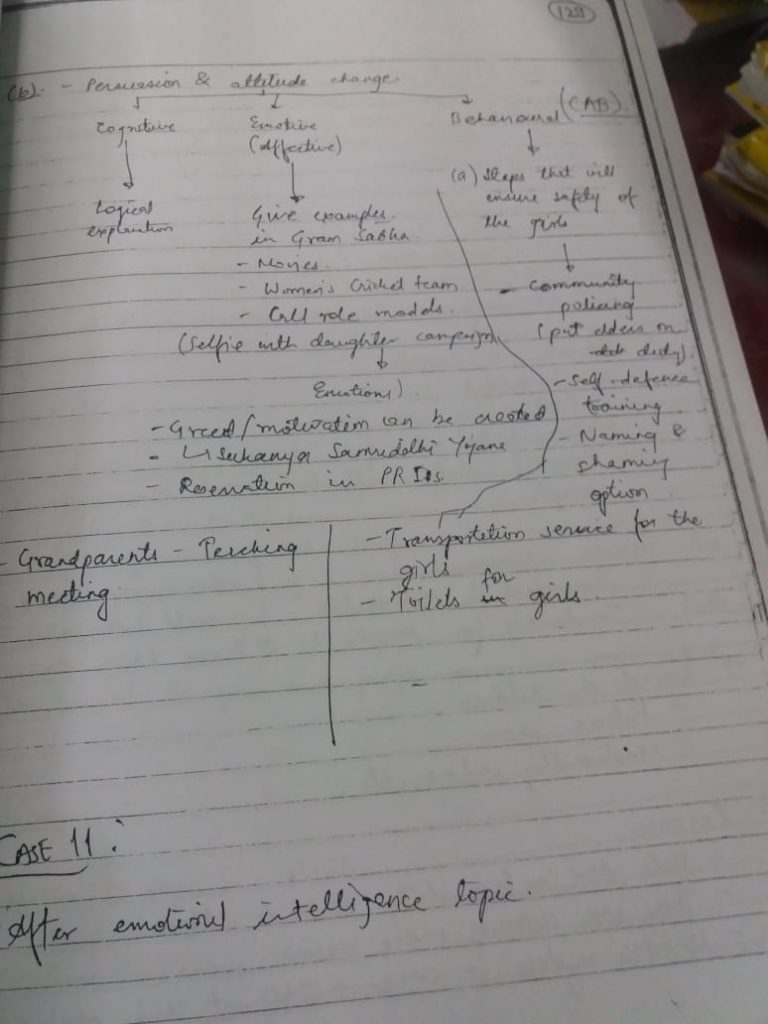 129
(b). - Persuasion & attitude change.
Cognitive
Emotive
(Affective)
Behavioural (CAB).
Logical
explantion
Give examples.
in Gram Sabha.
- Movies.
- Women's Cricket team
- Call role models.
(Selfie with daughter campaign
Emotions)
- Greed/motivation can be created
- ↳ Sukanya Samriddhi Yjane
- Reservation in PRIs.
(a) Steps that will
ensure safety of
the girls
- Community
policing
(put elders on
duty).
- Self-defence
training.
- Naming &
shaming
option
- Grandparents - Teaching
meeting.
- Transportation service for the
girls
- Toilets for girls.
-
CASE 11:
After emotional intelligence topic.